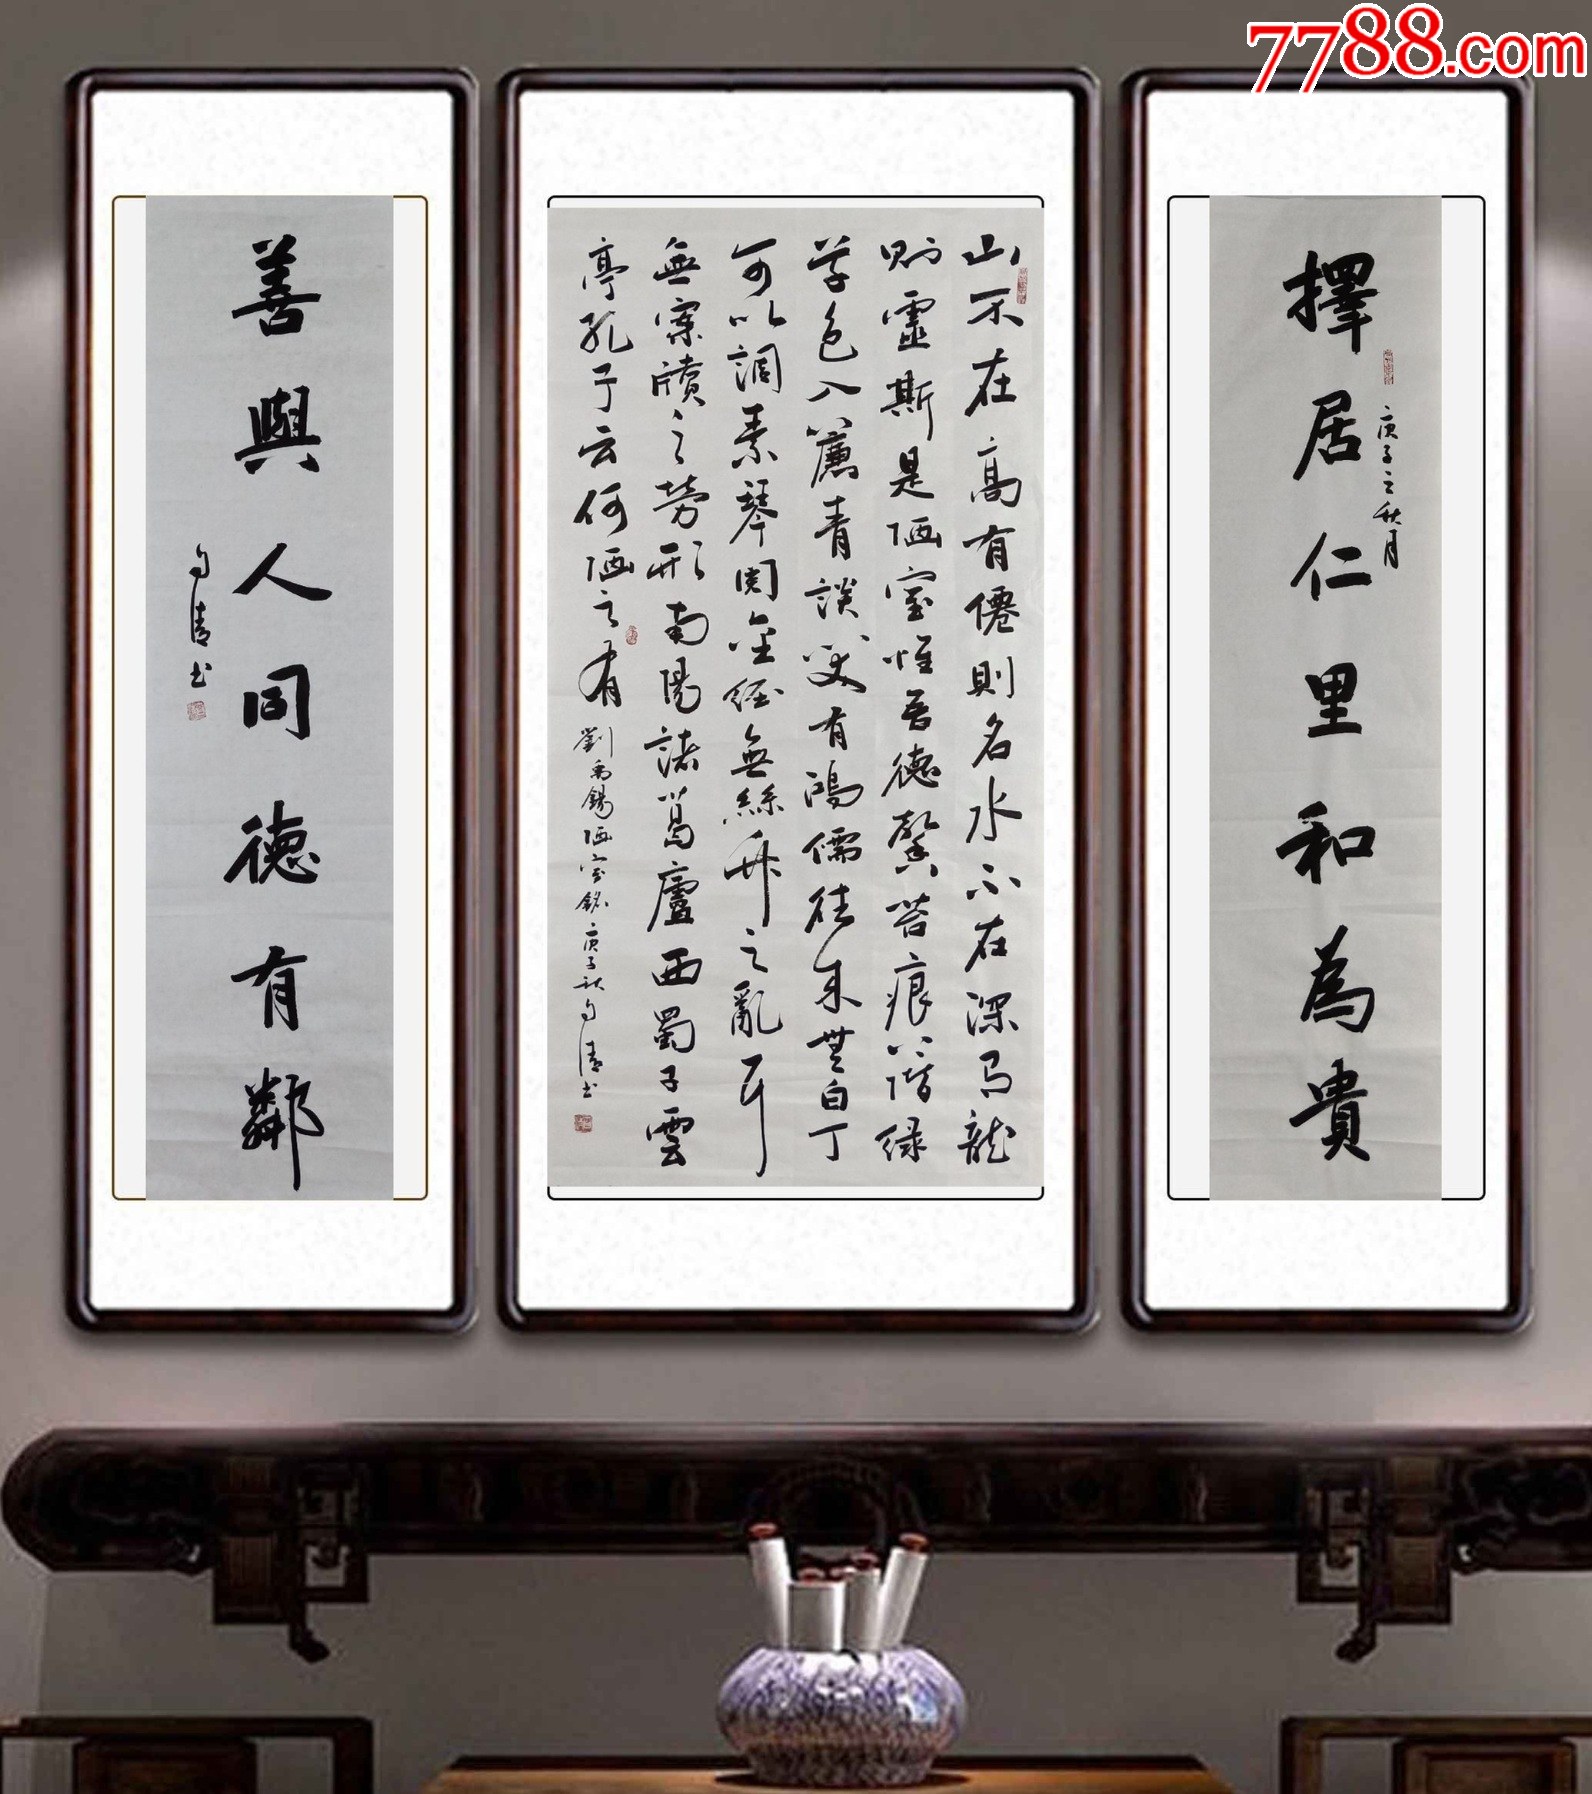 7788.com
擇居仁里和為貴
庚子之秋月
山不在高有僊則名水不在深有龍
則靈斯是陋室惟吾德馨苔痕上階綠
草色入簾青談笑有鴻儒往來無白丁
可以調素琴閱金經無絲竹之亂耳
無案牘之勞形南陽諸葛廬西蜀子雲
亭孔子云何陋之有
劉禹錫陋室銘庚子秋清书
善與人同德有鄰
清书